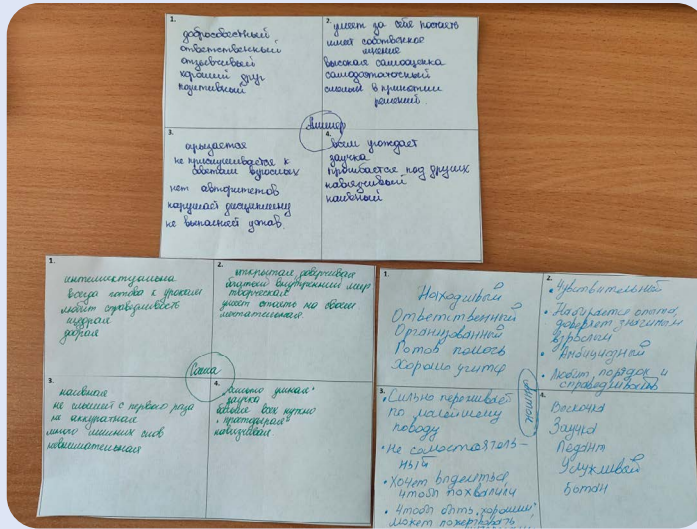 1.
добросовестный
ответственный
отзывчивый
хороший друг
позитивный
2.
умеет за себя постоять
имеет собственное
мнение
высокая самооценка
самодостаточный
смелый в принятии
решений.
3.
огрызается
не прислушивается к
советам взрослых
нет авторитетов
нарушает дисциплину
не выполняет устав.
4.
всем угождает
заучка
прогибается под других
навязчивый
наивный
1.
интеллектуальна
всегда готова к урокам
любит справедливость
мудрая
добрая
2.
открытая, доверчивая
богатый внутренний мир
творческая
умеет стоять на своём
мечтательная
Соша
3.
наивная
не слышит с первого раза
не аккуратная
много лишних слов
невнимательная
4.
заучка
больше всех нужно
навязчивая
1.
Находчивый
Ответственный
Организованный
Готов помочь
Хорошо учится
2.
• Чувствительный
• Набирается опыта,
доверяет значимым
взрослым
• Амбициозный
• Любит порядок и
справедливость
3.
• Сильно переживает
по малейшему
поводу
• Не самостоятель-
ный
• Хочет выделиться
чтобы похвалили
• Чтобы быть "хорошим",
может пожертвовать
4.
Выскочка
Заучка
Педант
Услужливый
Ботан